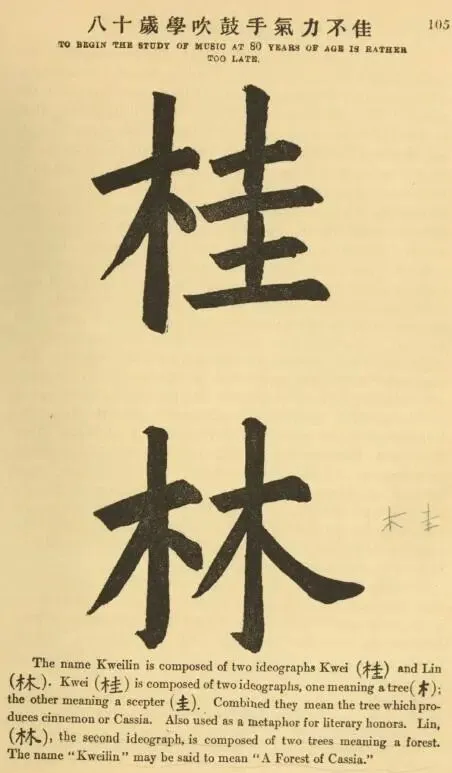 八十歲學吹鼓手氣力不佳
105
TO BEGIN THE STUDY OF MUSIC AT 80 YEARS OF AGE IS RATHER
TOO LATE.
桂
林
木 圭
The name Kweilin is composed of two ideographs Kwei (桂) and Lin
(林). Kwei (桂) is composed of two ideographs, one meaning a tree (木);
the other meaning a scepter (圭). Combined they mean the tree which pro-
duces cinnemon or Cassia. Also used as a metaphor for literary honors. Lin,
(林), the second ideograph, is composed of two trees meaning a forest.
The name "Kweilin" may be said to mean "A Forest of Cassia."